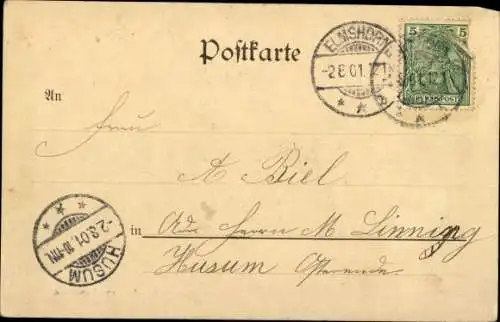 Postkarte
ELMSHORN
-2.8.01.
5
REICHSPOST
An
A Biel
in Adr. Herrn M. Linning
Husum Osterende.
-2.8.01.
HUSUM